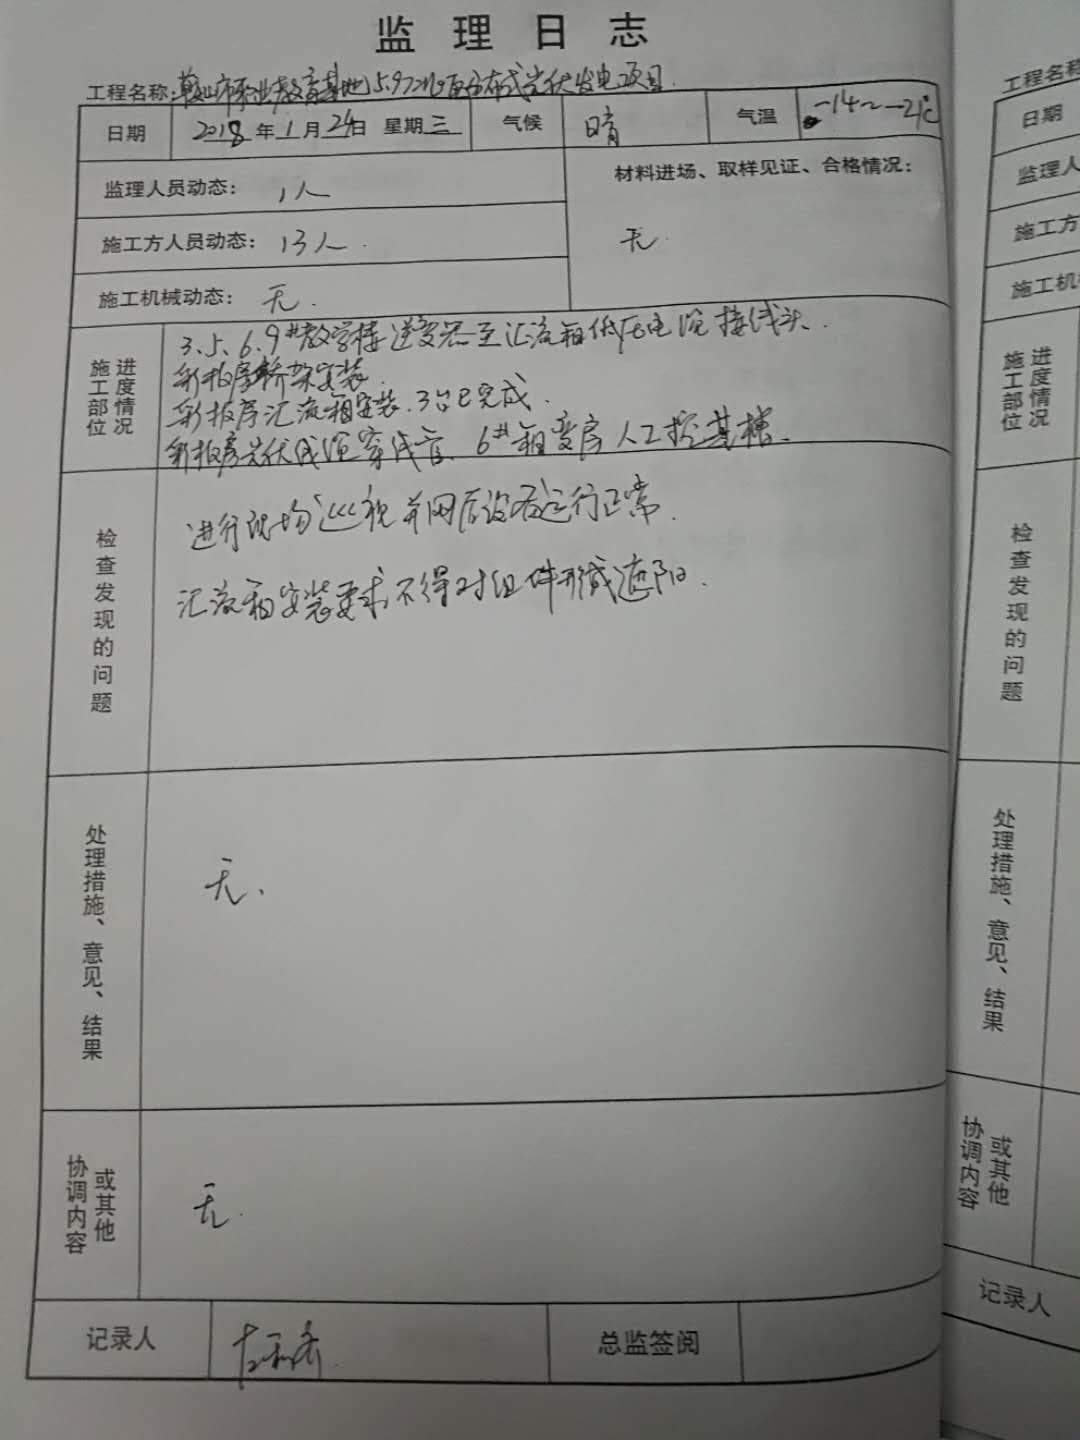 监理日志
工程名称:鞍山市职业教育基地5.972兆瓦分布式光伏发电项目.
日期 2018年1月24日 星期三 气候 晴 气温 -14~-21℃
监理人员动态: 1人
材料进场、取样见证、合格情况:
施工方人员动态: 13人.
无.
施工机械动态: 无.
施工部位 进度情况
3.5.6.9#教学楼逆变器至汇流箱低压电缆接线头.
彩板房桥架安装.
彩板房汇流箱安装.3台已完成.
彩板房光伏线缆穿线管、6#箱变房人工挖基槽.
检查发现的问题
进行现场巡视并网后设备运行正常.
汇流箱安装要求不得对组件形成遮阳.
处理措施、意见、结果
无.
协调内容 或其他
无.
记录人
总监签阅
工程名称
日期
监理人
施工方
施工机
施工部位 进度情况
检查发现的问题
处理措施、意见、结果
协调内容 或其他
记录人